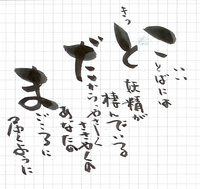 いい
ことばには
きっと妖精が
棲んでいる
だから、やさしく
ささやくの
あなたの
まごころに
届くように